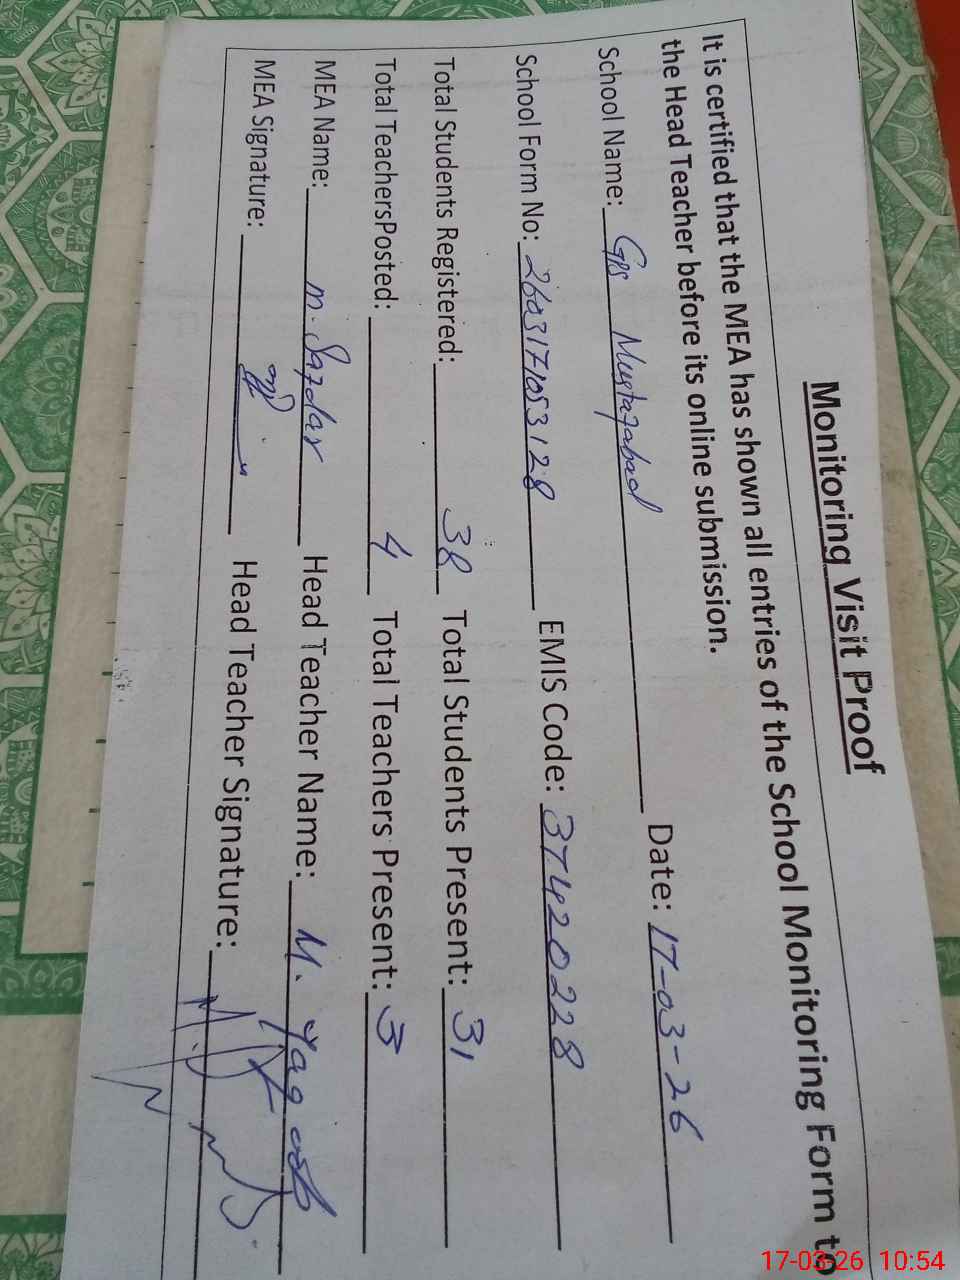 Monitoring Visit Proof
It is certified that the MEA has shown all entries of the School Monitoring Form to
the Head Teacher before its online submission.
School Name: GPS Mustafabad Date: 17-03-26
School Form No: 2603171053128 EMIS Code: 37420228
Total Students Registered: 38 Total Students Present: 31
Total TeachersPosted: 4 Total Teachers Present: 3
MEA Name: M. Safdar Head Teacher Name: M. Yaqoob
MEA Signature: Head Teacher Signature:
17-03-26 10:54